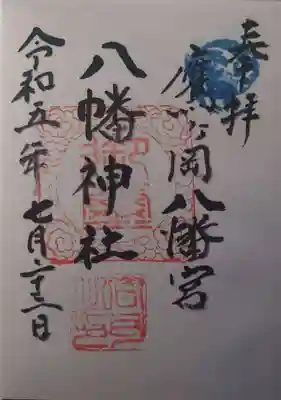 奉拝
ヶ岡八幡宮
八幡神社
令和五年七月二十三日